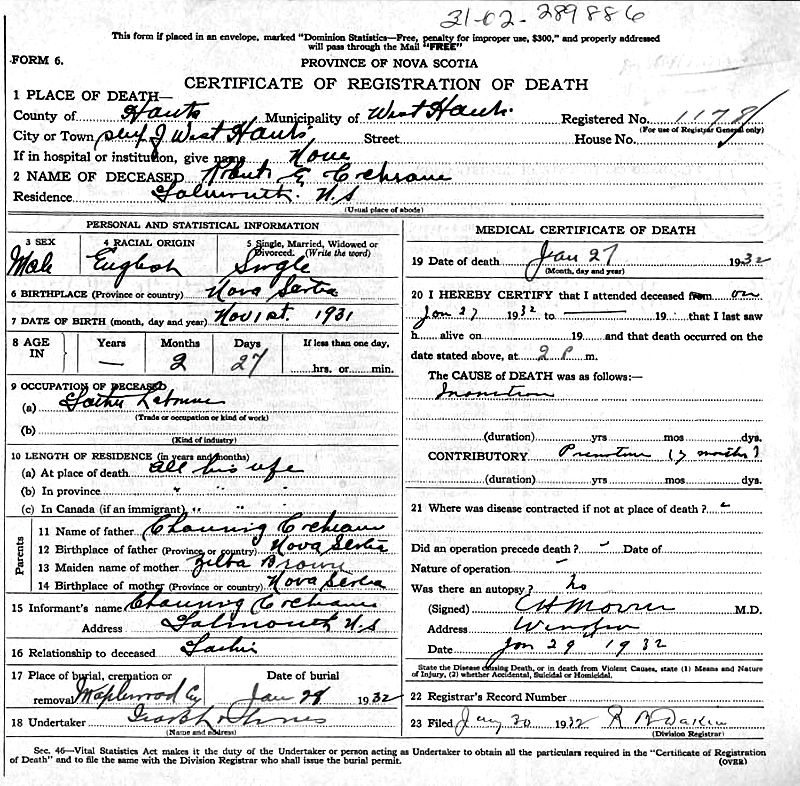 31-02-289886
This form if placed in an envelope, marked "Dominion Statistics—Free, penalty for improper use, $300," and properly addressed
will pass through the Mail "FREE"
FORM 6.
PROVINCE OF NOVA SCOTIA
CERTIFICATE OF REGISTRATION OF DEATH
1 PLACE OF DEATH—
County of Hants Municipality of West Hants. Registered No. 1178
(For use of Registrar General only)
City or Town West Hants Street House No.
If in hospital or institution, give name None
2 NAME OF DECEASED E Cochrane
Residence Falmouth. N.S
(Usual place of abode)
PERSONAL AND STATISTICAL INFORMATION
3 SEX Male
4 RACIAL ORIGIN English
5 Single, Married, Widowed or
Divorced. (Write the word)
Single
6 BIRTHPLACE (Province or country) Nova Scotia
7 DATE OF BIRTH (month, day and year) Nov 1st. 1931
8 AGE IN Years — Months 2 Days 27 If less than one day,
hrs. or min.
9 OCCUPATION OF DECEASED
(a) Father
(Trade or occupation or kind of work)
(b)
(Kind of industry)
10 LENGTH OF RESIDENCE (in years and months)
(a) At place of death all his life
(b) In province " " "
(c) In Canada (if an immigrant) " " "
Parents
11 Name of father Channing Cochrane
12 Birthplace of father (Province or country) Nova Scotia
13 Maiden name of mother Brown
14 Birthplace of mother (Province or country) Nova Scotia
15 Informant's name Channing Cochrane
Address Falmouth N.S
16 Relationship to deceased Father
17 Place of burial, cremation or
removal Maplewood Cy
Date of burial
Jan 28 1932
18 Undertaker
(Name and address)
MEDICAL CERTIFICATE OF DEATH
19 Date of death Jan 27 1932
(Month, day and year)
20 I HEREBY CERTIFY that I attended deceased from on
Jan 27 1932 to — 19 that I last saw
h alive on 19 and that death occurred on
date stated above, at 2 P m.
The CAUSE of DEATH was as follows:—
Inanition
(duration) yrs mos dys.
CONTRIBUTORY Premature (7 months)
(duration) yrs mos dys.
21 Where was disease contracted if not at place of death?
Did an operation precede death? - Date of
Nature of operation -
Was there an autopsy? No
(Signed) C H Morris M.D.
Address Windsor
Date Jan 29 1932
State the Disease causing Death, or in death from Violent Causes, state (1) Means and Nature
of Injury, (2) whether Accidental, Suicidal or Homicidal.
22 Registrar's Record Number
23 Filed Jany 30 1932 R B Dakin
(Division Registrar)
Sec. 46—Vital Statistics Act makes it the duty of the Undertaker or person acting as Undertaker to obtain all the particulars required in the "Certificate of Registration
of Death" and to file the same with the Division Registrar who shall issue the burial permit.
(OVER)